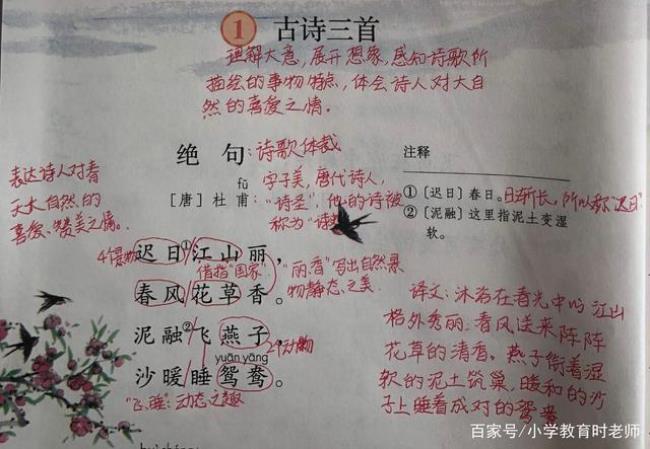 1 古诗三首
理解大意,展开想象,感知诗歌所
描绘的事物特点,体会诗人对大自
然的喜爱之情。
绝句:诗歌体裁
注释
表达诗人对春
天大自然的
喜爱、赞美之情。
fǔ
[唐] 杜甫:
字子美,唐代诗人,
"诗圣",他的诗被
称为"诗
①〔迟日〕春日。日渐长,所以称"迟日"
②〔泥融〕这里指泥土变湿
软。
4个景物
迟日①江山丽,
借指"国家"
"丽、香"写出自然景
物静态之美
春风花草香。
泥融②飞燕子,
2个动物
yuānyāng
沙暖睡鸳鸯。
"飞、睡":动态之趣
译文:沐浴在春光中的江山
格外秀丽,春风送来阵阵
花草的清香。燕子衔着湿
软的泥土筑巢,暖和的沙
子上睡着成对的鸳鸯
百家号/小学教育时老师